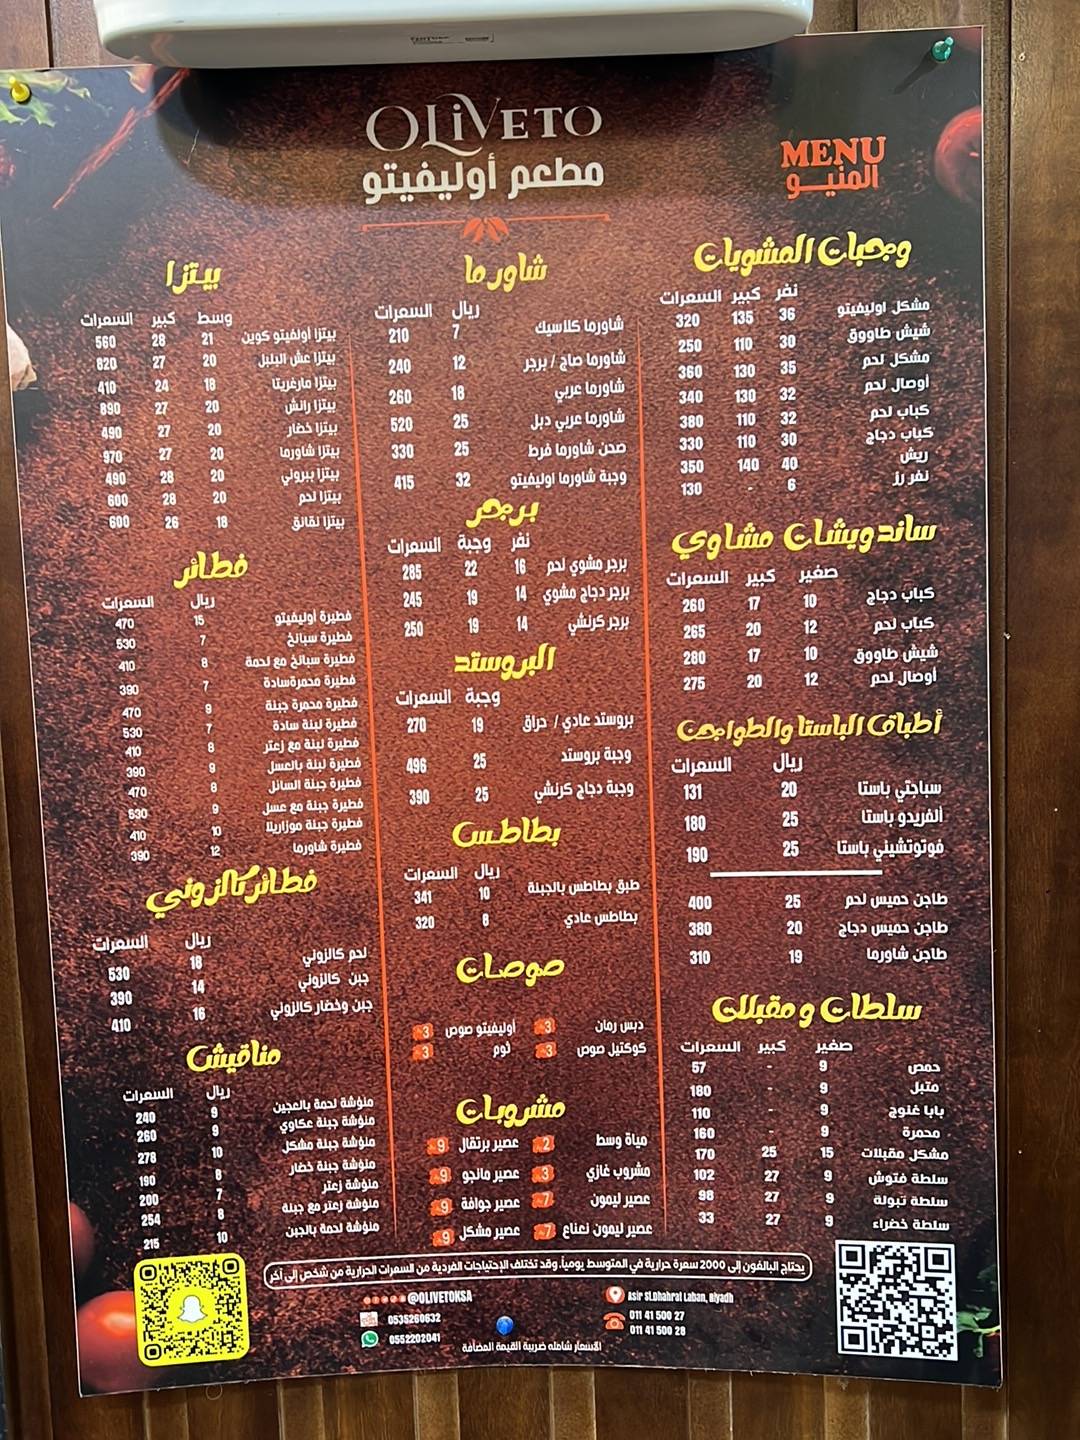 OLiVETO
مطعم أوليفيتو
MENU
المنيو
وجبات المشويات
نفر كبير السعرات
مشكل اوليفيتو 36 135 320
شيش طاووق 30 110 250
مشكل لحم 35 130 360
أوصال لحم 32 130 340
كباب لحم 32 110 380
كباب دجاج 30 110 330
ريش 40 140 350
نفر رز 6 - 130
ساندويشات مشاوي
صغير كبير السعرات
كباب دجاج 10 17 260
كباب لحم 12 20 265
شيش طاووق 10 17 280
أوصال لحم 12 20 275
أطباق الباستا والطواجن
ريال السعرات
سباجتي باستا 20 131
ألفريدو باستا 25 180
فوتوتشيني باستا 25 190
طاجن حميس لحم 25 400
طاجن حميس دجاج 20 380
طاجن شاورما 19 310
سلطات و مقبلات
صغير كبير السعرات
حمص 9 - 57
متبل 9 - 180
بابا غنوج 9 - 110
محمرة 9 - 160
مشكل مقبلات 15 25 170
سلطة فتوش 9 27 102
سلطة تبولة 9 27 98
سلطة خضراء 9 27 33
شاورما
ريال السعرات
شاورما كلاسيك 7 210
شاورما صاج / برجر 12 240
شاورما عربي 18 260
شاورما عربي دبل 25 520
صحن شاورما فرط 25 330
وجبة شاورما اوليفيتو 32 415
برجر
نفر وجبة السعرات
برجر مشوي لحم 16 22 285
برجر دجاج مشوي 14 19 245
برجر كرنشي 14 19 250
البروستد
وجبة السعرات
بروستد عادي / حراق 19 270
وجبة بروستد 25 496
وجبة دجاج كرنشي 25 390
بطاطس
ريال السعرات
طبق بطاطس بالجبنة 10 341
بطاطس عادي 8 320
صوصات
دبس رمان 3 أوليفيتو صوص 3
كوكتيل صوص 3 ثوم 3
مشروبات
مياة وسط 2 عصير برتقال 9
مشروب غازي 3 عصير مانجو 9
عصير ليمون 7 عصير جوافة 9
عصير ليمون نعناع 7 عصير مشكل 9
بيتزا
وسط كبير السعرات
بيتزا أولفيتو كوين 21 28 560
بيتزا عش البلبل 20 27 820
بيتزا مارغريتا 18 24 410
بيتزا رانش 20 27 890
بيتزا خضار 20 27 490
بيتزا شاورما 20 27 970
بيتزا ببروني 20 28 490
بيتزا لحم 20 28 600
بيتزا نقانق 18 26 600
فطائر
ريال السعرات
فطيرة أوليفيتو 15 470
فطيرة سبانخ 7 530
فطيرة سبانخ مع لحمة 8 410
فطيرة محمرةسادة 7 390
فطيرة محمرة جبنة 9 470
فطيرة لبنة سادة 7 530
فطيرة لبنة مع زعتر 8 410
فطيرة لبنة بالعسل 9 390
فطيرة جبنة السائل 8 470
فطيرة جبنة مع عسل 9 530
فطيرة جبنة موزاريلا 10 410
فطيرة شاورما 12 390
فطائر كالزوني
ريال السعرات
لحم كالزوني 18 530
جبن كالزوني 14 390
جبن وخضار كالزوني 16 410
مناقيش
ريال السعرات
منؤشة لحمة بالعجين 9 240
منؤشة جبنة عكاوي 9 260
منؤشة جبنة مشكل 10 278
منؤشة جبنة خضار 8 190
منؤشة زعتر 7 200
منؤشة زعتر مع جبنة 8 254
منؤشة لحمة بالجبن 10 215
يحتاج البالغون إلى 2000 سعرة حرارية في المتوسط يومياً، وقد تختلف الإحتياجات الفردية من السعرات الحرارية من شخص إلى آخر
@OLIVETOKSA
0535260632
0552202041
Asir St.Dhahrat Laban, Riyadh
011 41 500 27
011 41 500 28
الاسعار شامله ضريبة القيمة المضافة